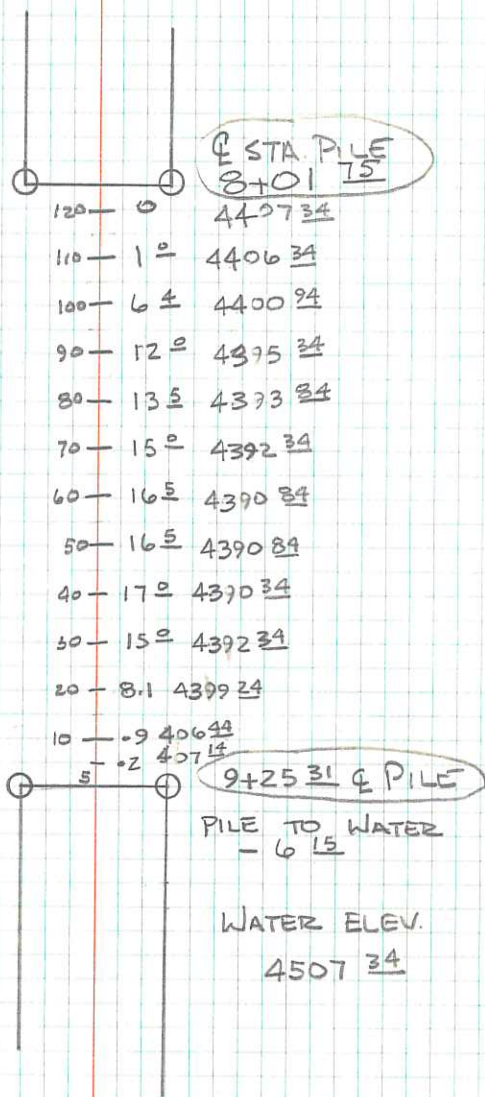 ℄ STA. PILE
8+01 75
120— 0 4407 34
110— 1 0 4406 34
100— 6 4 4400 94
90— 12 0 4395 34
80— 13 5 4393 84
70— 15 0 4392 34
60— 16 5 4390 84
50— 16 5 4390 84
40— 17 0 4390 34
30— 15 0 4392 34
20 - 8.1 4399 24
10 — .9 406 44
5 - .2 407 14
9+25 31 ℄ PILE
PILE TO WATER
- 6 15
WATER ELEV.
4507 34